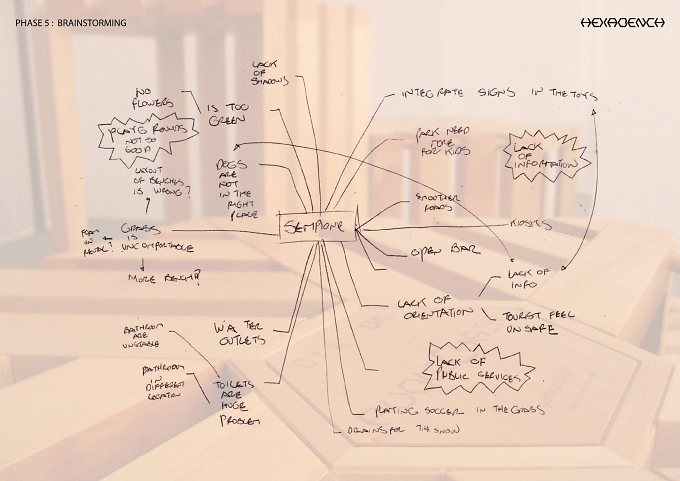 PHASE 5 : BRAINSTORMING
HEXABENCH
LACK
OF
SHADOWS
NO
FLOWERS
IS TOO
GREEN
PLAYGROUNDS
NOT SO
GOOD
LAYOUT
OF BENCHES
IS WRONG?
DOGS
ARE
NOT
IN THE
RIGHT
PLACE
GRASS
IS
UNCOMFORTABLE
METAL?
MORE BENCH?
SEMPIONE
INTEGRATE SIGNS IN THE TOYS
PARK NEED
MORE
FOR KIDS
LACK
OF
INFORMATION
SMOOTHER
ROADS
KIOSKS
OPEN BAR
LACK OF
INFO
LACK OF
ORIENTATION
TOURIST FEEL
UNSAFE
WATER
OUTLETS
BATHROOM
ARE
UNSTABLE
BATHROOM
IN
DIFFERENT
LOCATION
TOILETS
ARE
HUGE
PROBLEM
LACK OF
PUBLIC SERVICES
PLAYING SOCCER IN THE GRASS
DRAINS FOR THE SNOW